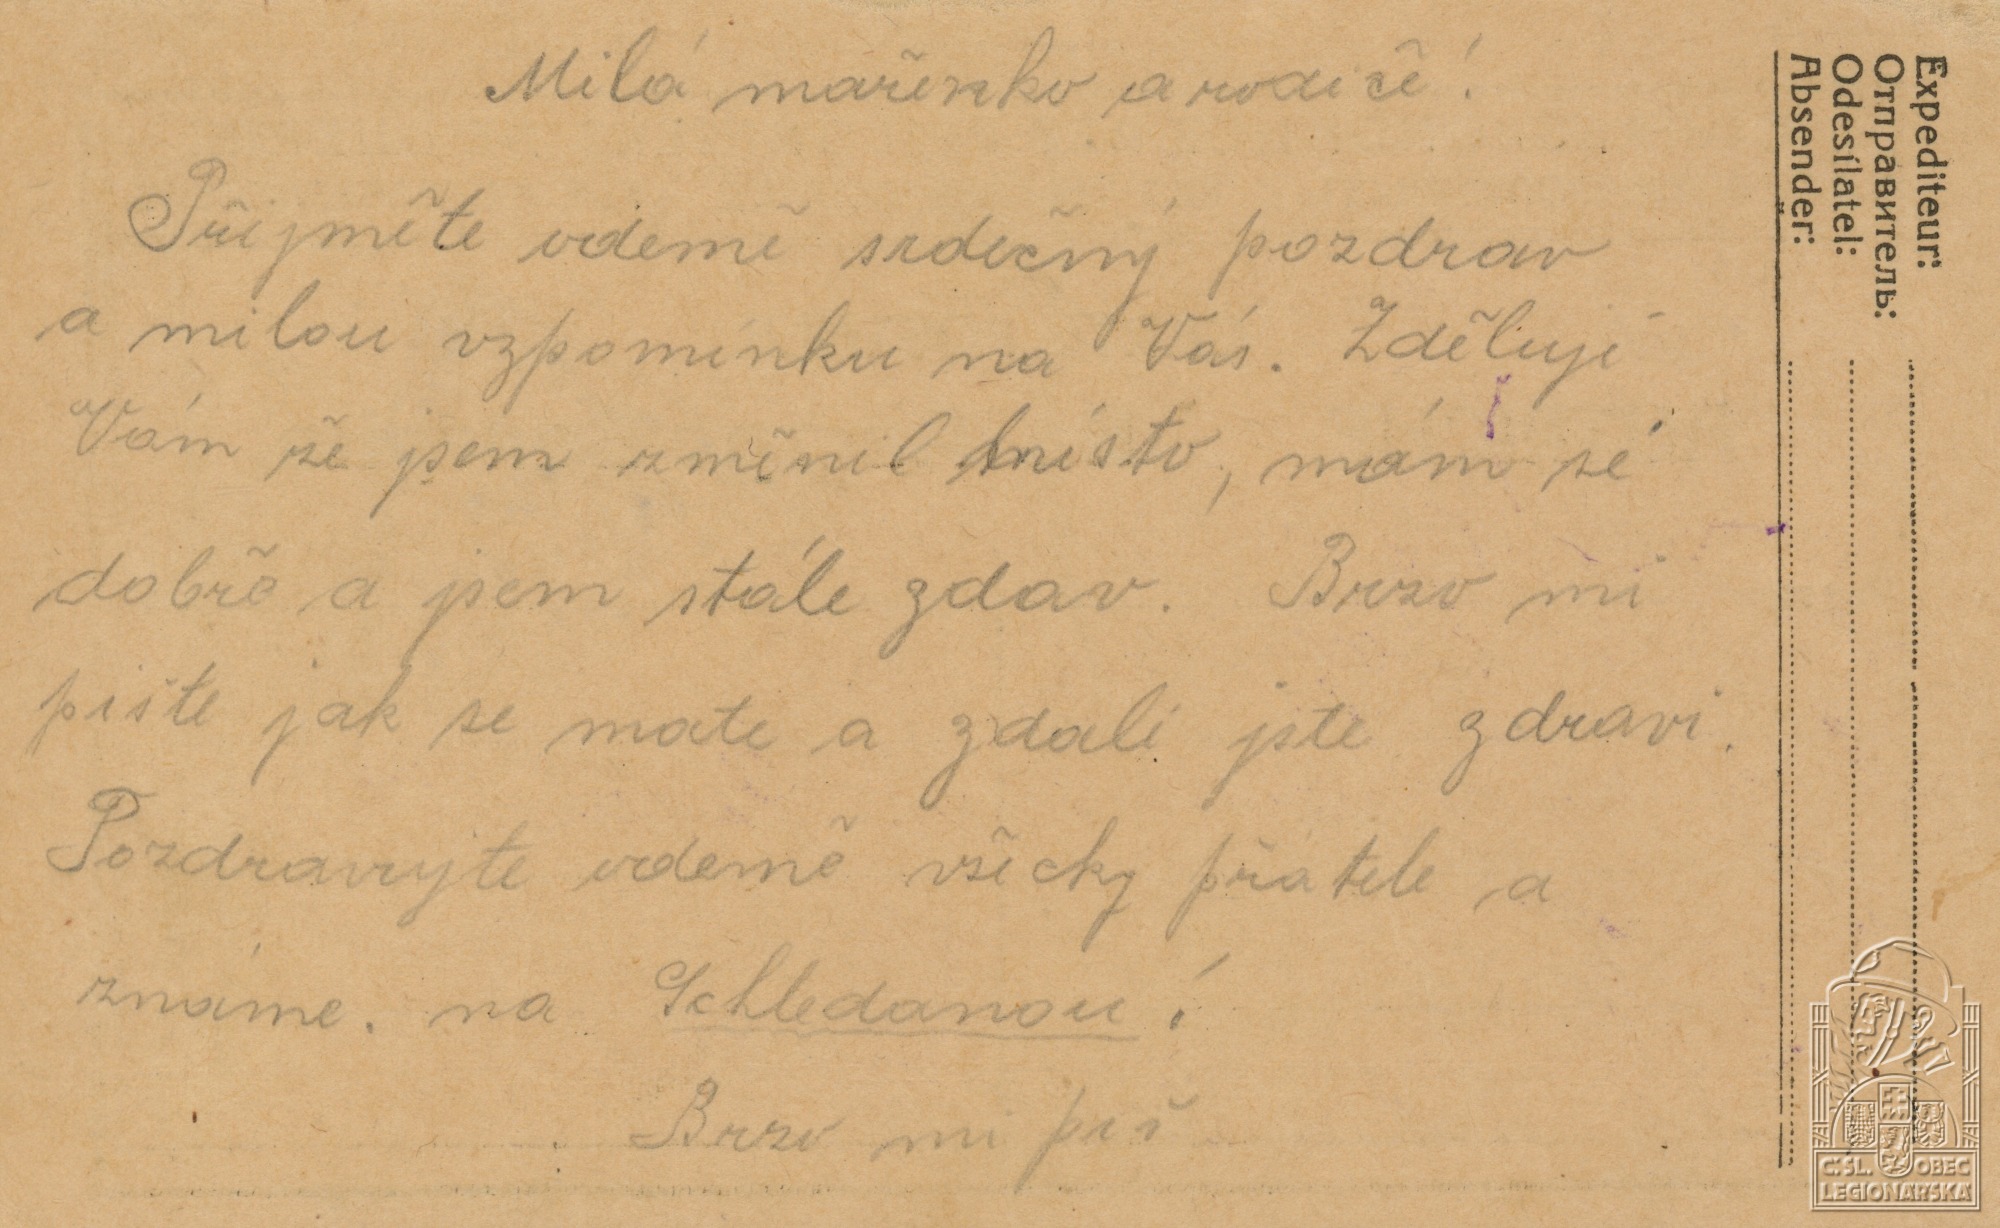 Milá mařenko a rodiče!
Přijměte odemě srdečný pozdrav
a milou vzpomínku na Vás. Zděluji
Vám že jsem změnil místo, mám sé
dobře a jsem stále zdav. Brzo mi
pište jak se mate a zdali jste zdravi.
Pozdravujte odemě všecky přatele a
známe. na Schledanou!
Brzo mi piš
Expediteur:
Отправитель:
Odesílatel:
Absender:
Č.SL. OBEC
LEGIONÁŘSKÁ